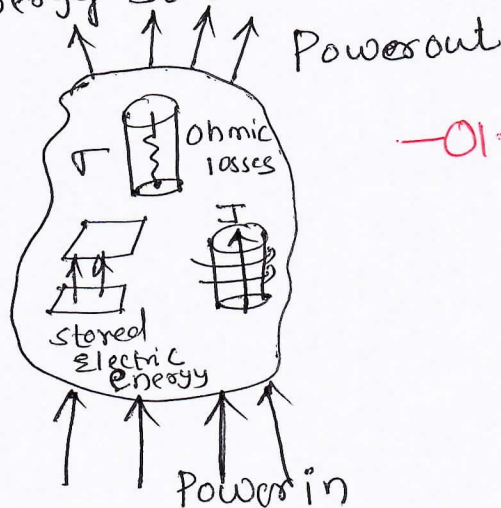 Powerout
σ
Ohmic
losses
—01
J
stored
Electric
Energy
Power in